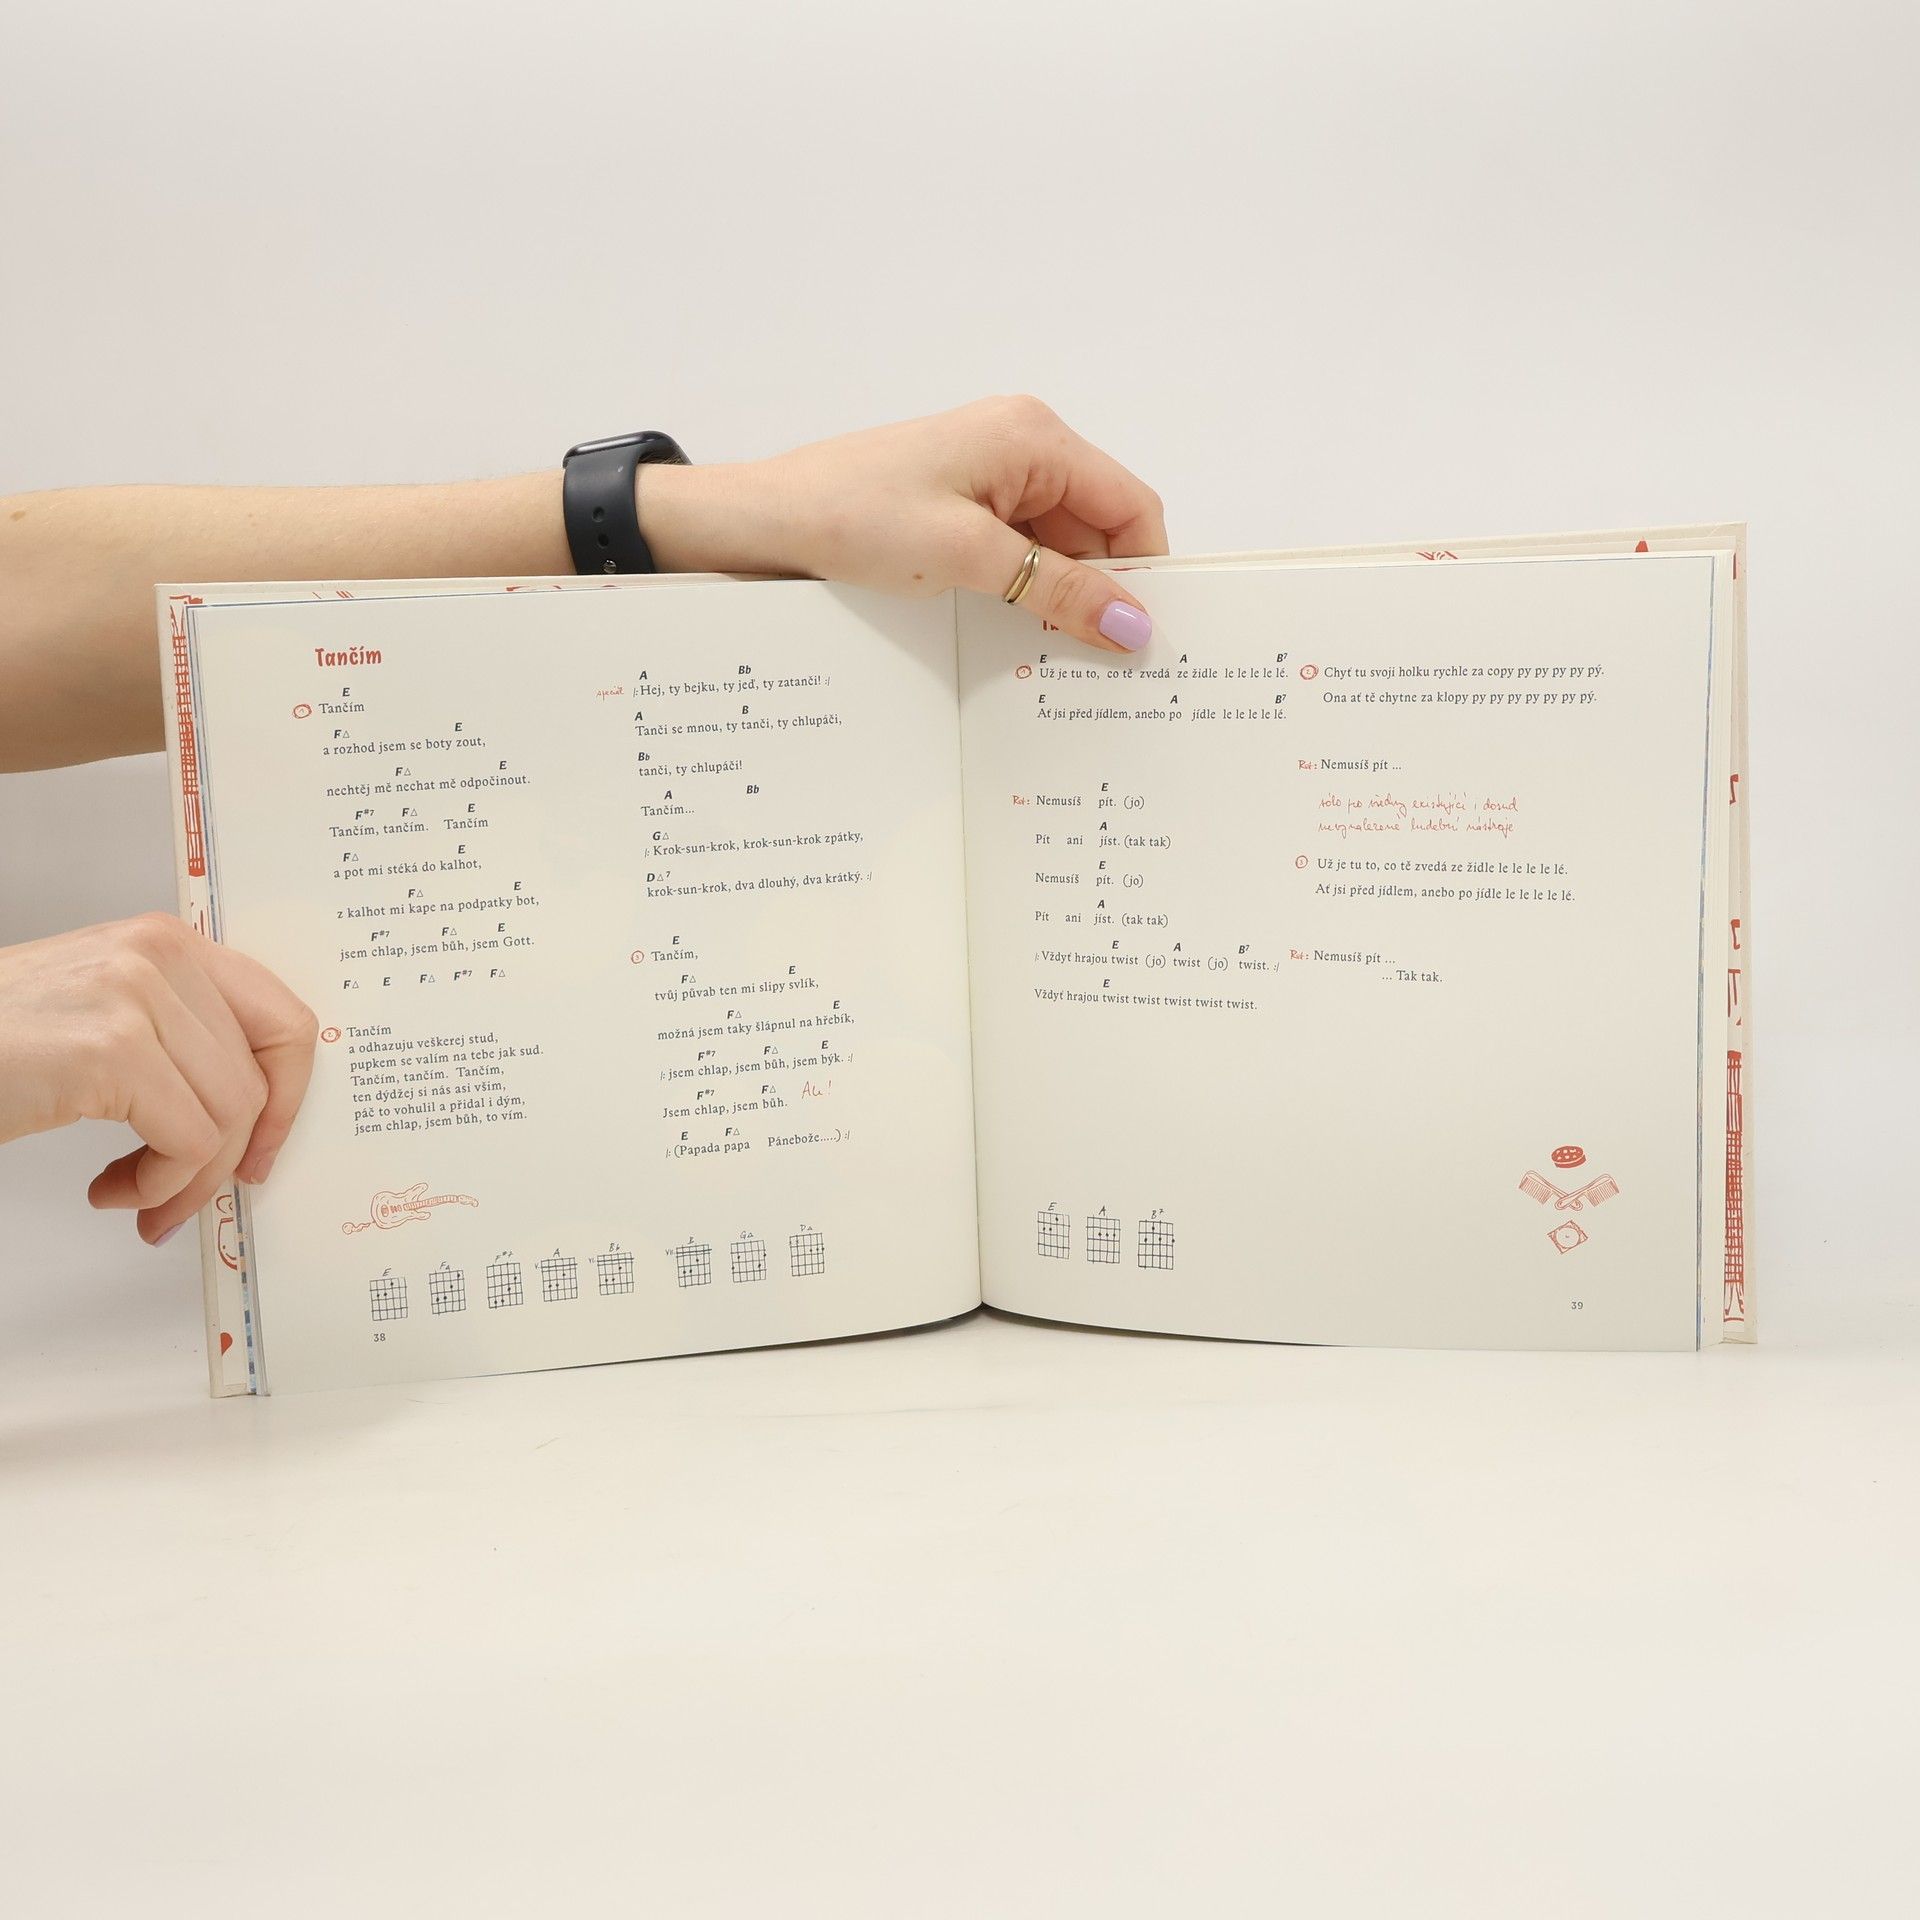 Tančím
E
① Tančím
F△ E
a rozhod jsem se boty zout,
F△ E
nechtěj mě nechat mě odpočinout.
F#7 F△ E
Tančím, tančím. Tančím
F△ E
a pot mi stéká do kalhot,
F△ E
z kalhot mi kape na podpatky bot,
F#7 F△ E
jsem chlap, jsem bůh, jsem Gott.
F△ E F△ F#7 F△
② Tančím
a odhazuju veškerej stud,
pupkem se valím na tebe jak sud.
Tančím, tančím. Tančím,
ten dýdžej si nás asi všim,
páč to vohulil a přidal i dým,
jsem chlap, jsem bůh, to vím.
A Bb
speciál /: Hej, ty bejku, ty jeď, ty zatanči! :/
A B
Tanči se mnou, ty tanči, ty chlupáči,
Bb
tanči, ty chlupáči!
A Bb
Tančím...
G△
/: Krok-sun-krok, krok-sun-krok zpátky,
D△7
krok-sun-krok, dva dlouhý, dva krátký. :/
E
③ Tančím,
F△ E
tvůj půvab ten mi slipy svlík,
F△ E
možná jsem taky šlápnul na hřebík,
F#7 F△ E
/: jsem chlap, jsem bůh, jsem býk. :/
F#7 F△
Jsem chlap, jsem bůh. Au!
E F△
/: (Papada papa Pánebože.....) :/
E F△ F#7 A Bb B G△ D△
V. VI. VII.
38
E A B7
① Už je tu to, co tě zvedá ze židle le le le le lé.
E A B7
Ať jsi před jídlem, anebo po jídle le le le le lé.
E
Ref: Nemusíš pít. (jo)
A
Pít ani jíst. (tak tak)
E
Nemusíš pít. (jo)
A
Pít ani jíst. (tak tak)
E A B7
/: Vždyť hrajou twist (jo) twist (jo) twist. :/
E
Vždyť hrajou twist twist twist twist twist.
② Chyť tu svoji holku rychle za copy py py py py pý.
Ona ať tě chytne za klopy py py py py py py pý.
Ref: Nemusíš pít ...
sólo pro všechny existující i dosud
nevynalezené hudební nástroje
③ Už je tu to, co tě zvedá ze židle le le le le lé.
Ať jsi před jídlem, anebo po jídle le le le le lé.
Ref: Nemusíš pít ...
... Tak tak.
E A B7
39